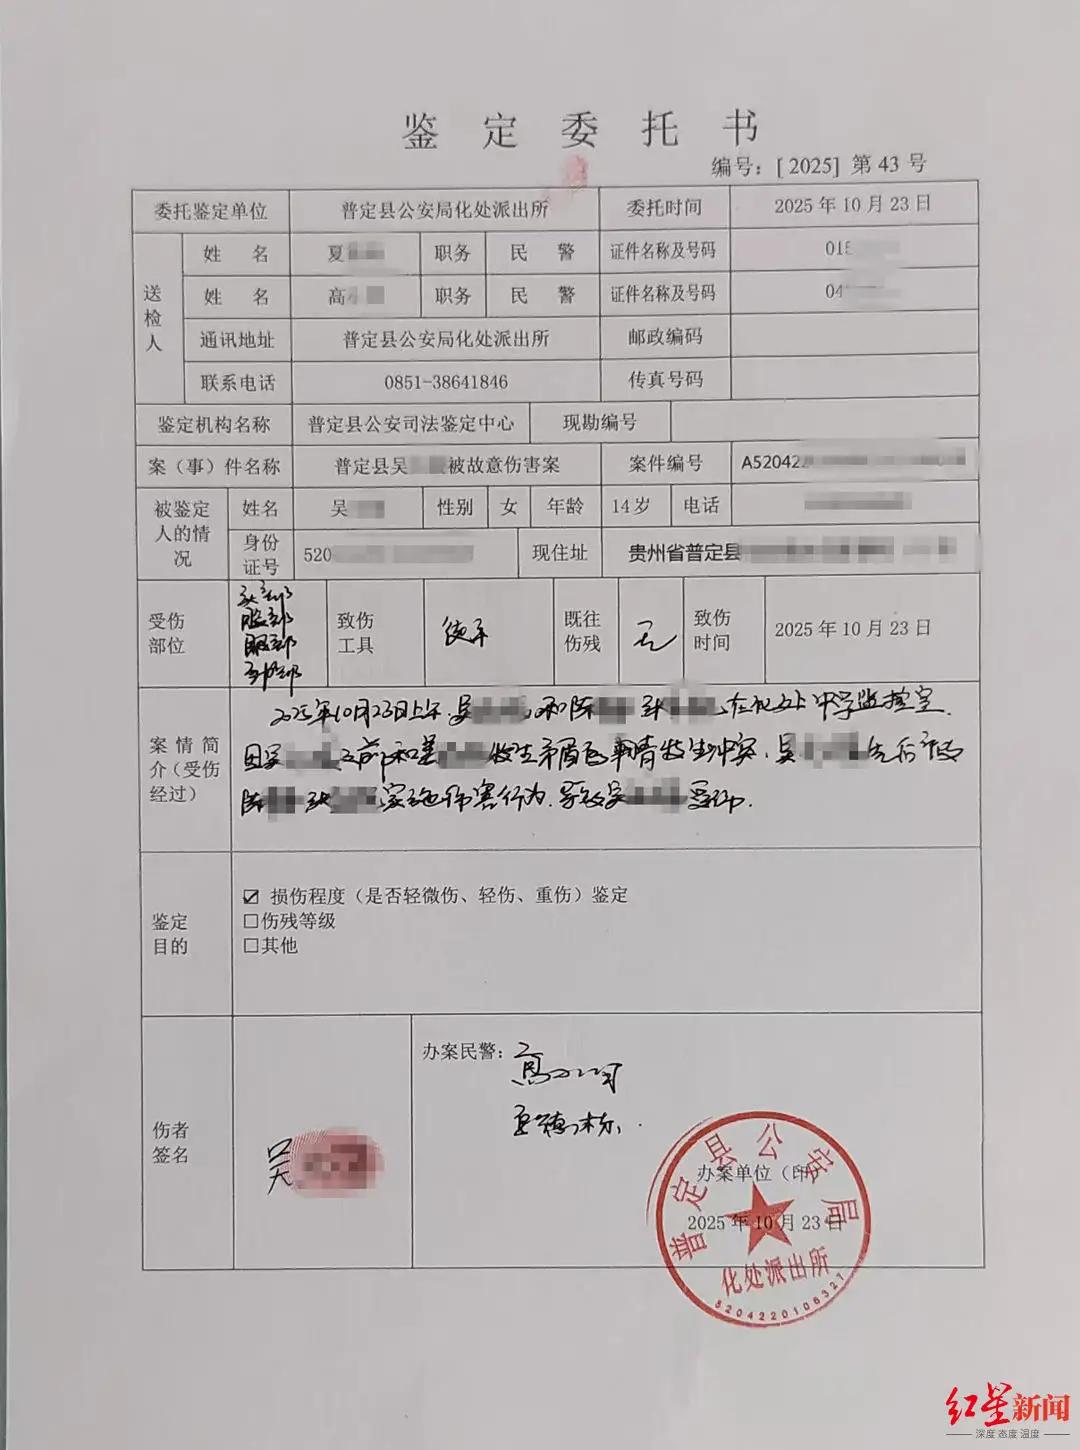 鉴定委托书
编号：[ 2025] 第 43 号
委托鉴定单位 普定县公安局化处派出所 委托时间 2025 年 10 月 23 日
送检人
姓 名 夏 职务 民 警 证件名称及号码 018
姓 名 高 职务 民 警 证件名称及号码 04
通讯地址 普定县公安局化处派出所 邮政编码
联系电话 0851-38641846 传真号码
鉴定机构名称 普定县公安司法鉴定中心 现勘编号
案（事）件名称 普定县吴 被故意伤害案 案件编号 A520422
被鉴定人的情况
姓名 吴 性别 女 年龄 14岁 电话
身份证号 520 现住址 贵州省普定县
受伤部位 头部
脸部
腿部
致伤工具 徒手 既往伤残 无 致伤时间 2025 年 10 月 23 日
案情简介（受伤经过）
2025年10月23日上午，吴 和陈 张 在化处中学监控室，
因吴 之前和 发生矛盾的事情发生冲突，吴 先后被
陈 张 实施伤害行为，导致吴 受伤．
鉴定目的
☑ 损伤程度（是否轻微伤、轻伤、重伤）鉴定
□伤残等级
□其他
伤者签名 吴
办案民警：高
办案单位（印）
2025 年 10 月 23 日
普定县公安局
化处派出所
5204220106327
红星新闻
深度 态度 温度